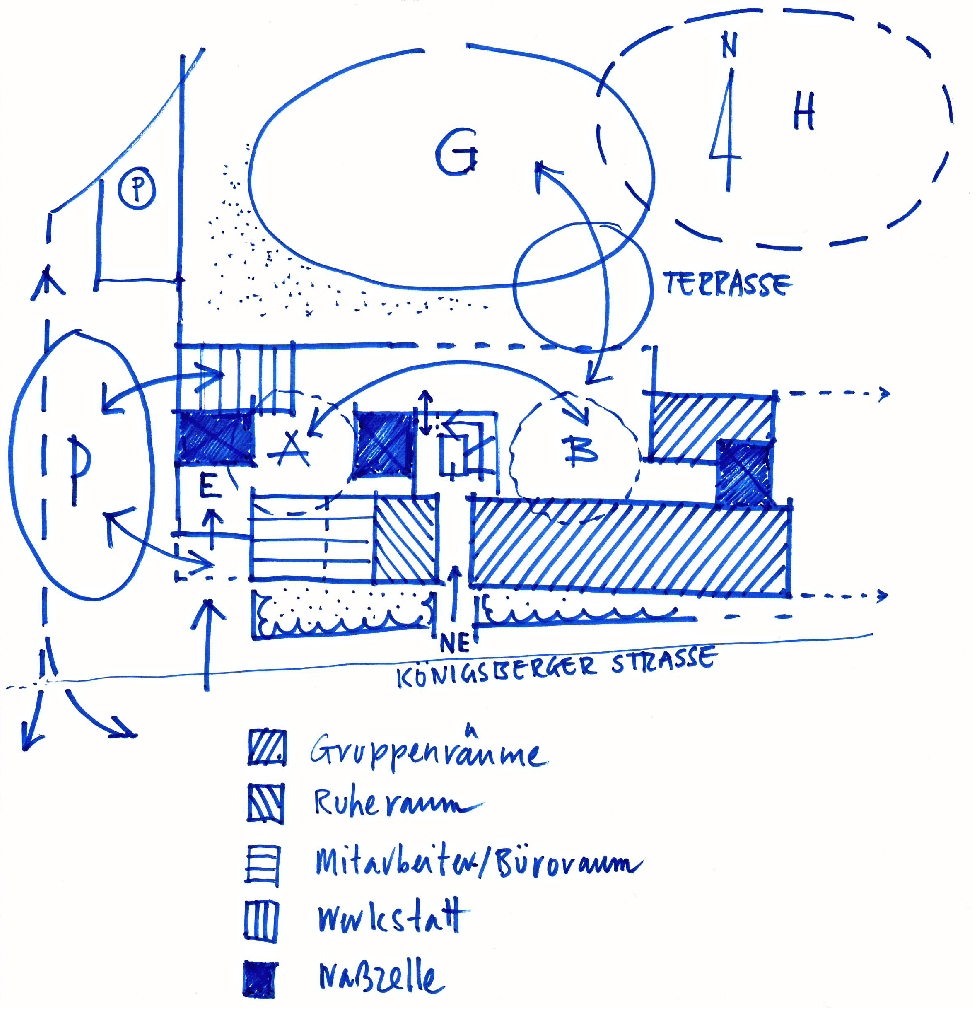 N
H
G
P
TERRASSE
P
A
B
E
NE
KÖNIGSBERGER STRASSE
Gruppenräume
Ruheraum
Mitarbeiter/Büroraum
Werkstatt
Naßzelle